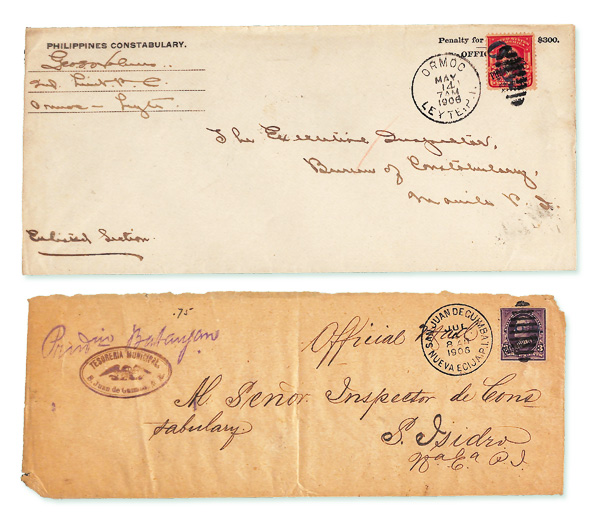 PHILIPPINES CONSTABULARY.
Penalty for $300.
2d. Lieut. P. C.
OFFIC
Ormoc – Leyte
ORMOC
MAY
14
7 AM
1906
LEYTE, P.I.
The Executive Inspector,
Bureau of Constabulary,
Manila P. I.
Enlisted Section.
.75
Official
SAN JUAN DE GUIMBA
JUL
8 AM
1906
NUEVA ECIJA, P.I.
3
TESORERIA MUNICIPAL
S. Juan de Guimba, N. E.
Al Señor Inspector de Cons
tabulary
S. Isidro
Na. Ea. P. I.